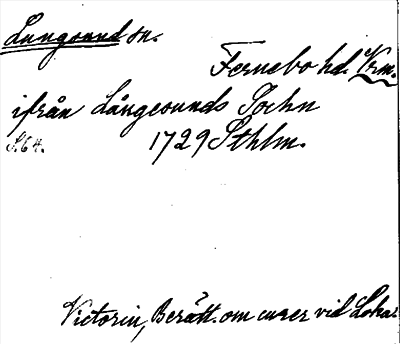 Lungsund sn.
Fernebo hd. Vrm.
ifrån Långesunds Sochn
S.64. 1729 Sthlm.
Victorin, Berätt. om curer vid Loka.